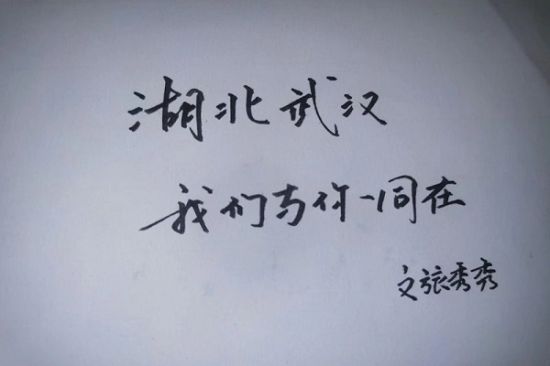 湖北武汉
我们与你一同在
文张秀秀